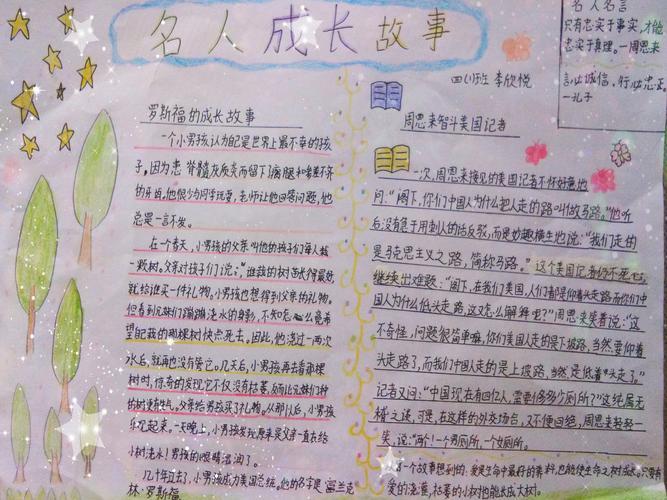 名人成长故事
名人名言
只有忠实于事实,才能
忠实于真理。—周恩来
言必诚信,行必忠正。
—孔子
四(1)班 李欣悦
罗斯福的成长故事
一个小男孩,认为自己是世界上最不幸的孩
子。因为患脊髓灰质炎而留下了瘸腿和参差不齐
的牙齿。他很少与同学玩耍,老师让他回答问题,他
总是一言不发。
在一个春天,小男孩的父亲叫他的孩子们每人栽
一颗树。父亲对孩子们说:,"谁栽的树苗长得最好,
就给谁买一件礼物。小男孩也想得到父亲的礼物。
但看到兄妹们蹦蹦跳跳浇水的身影,不知怎么竟希
望自己栽的那棵树快点死去。因此,他浇过一两次
水后,就再也没有管它。几天后,小男孩再去看那棵
树时,惊奇的发现它不仅没有枯萎,反而比兄妹们种
的树更有生气。父亲给男孩买了礼物。从那以后,小男孩
乐观起来。一天晚上,小男孩发现原来是父亲一直在给
小树浇水!男孩的眼睛湿润了。
几十年过去了,小男孩成为美国总统。他的名字是富兰克
林·罗斯福
周恩来智斗美国记者
一次,周恩来接见的美国记者不怀好意地
问:"阁下,你们中国人为什么把人走的路叫做马路。"他听
后没有急于用刺人的话反驳,而是妙趣横生地说:"我们走的
是马克思主义之路,简称马路。"这个美国记者仍不死心,
继续出难题:"阁下,在我们美国,人们都是仰着头走路,而你们中
国人为什么低头走路,这又怎么解释呢?"周恩来笑着说:"这
不奇怪,问题很简单嘛,你们美国人走的是下坡路,当然要仰着
头走路了,而我们中国人走的是上坡路,当然是低着头走了。"
记者又问:"中国现在有四亿人,需要修多少个厕所?"这纯属无
稽之谈,可是,在这样的外交场合,又不便回绝,周恩来轻轻一
笑,说:"两个!一个男厕所,一个女厕所。